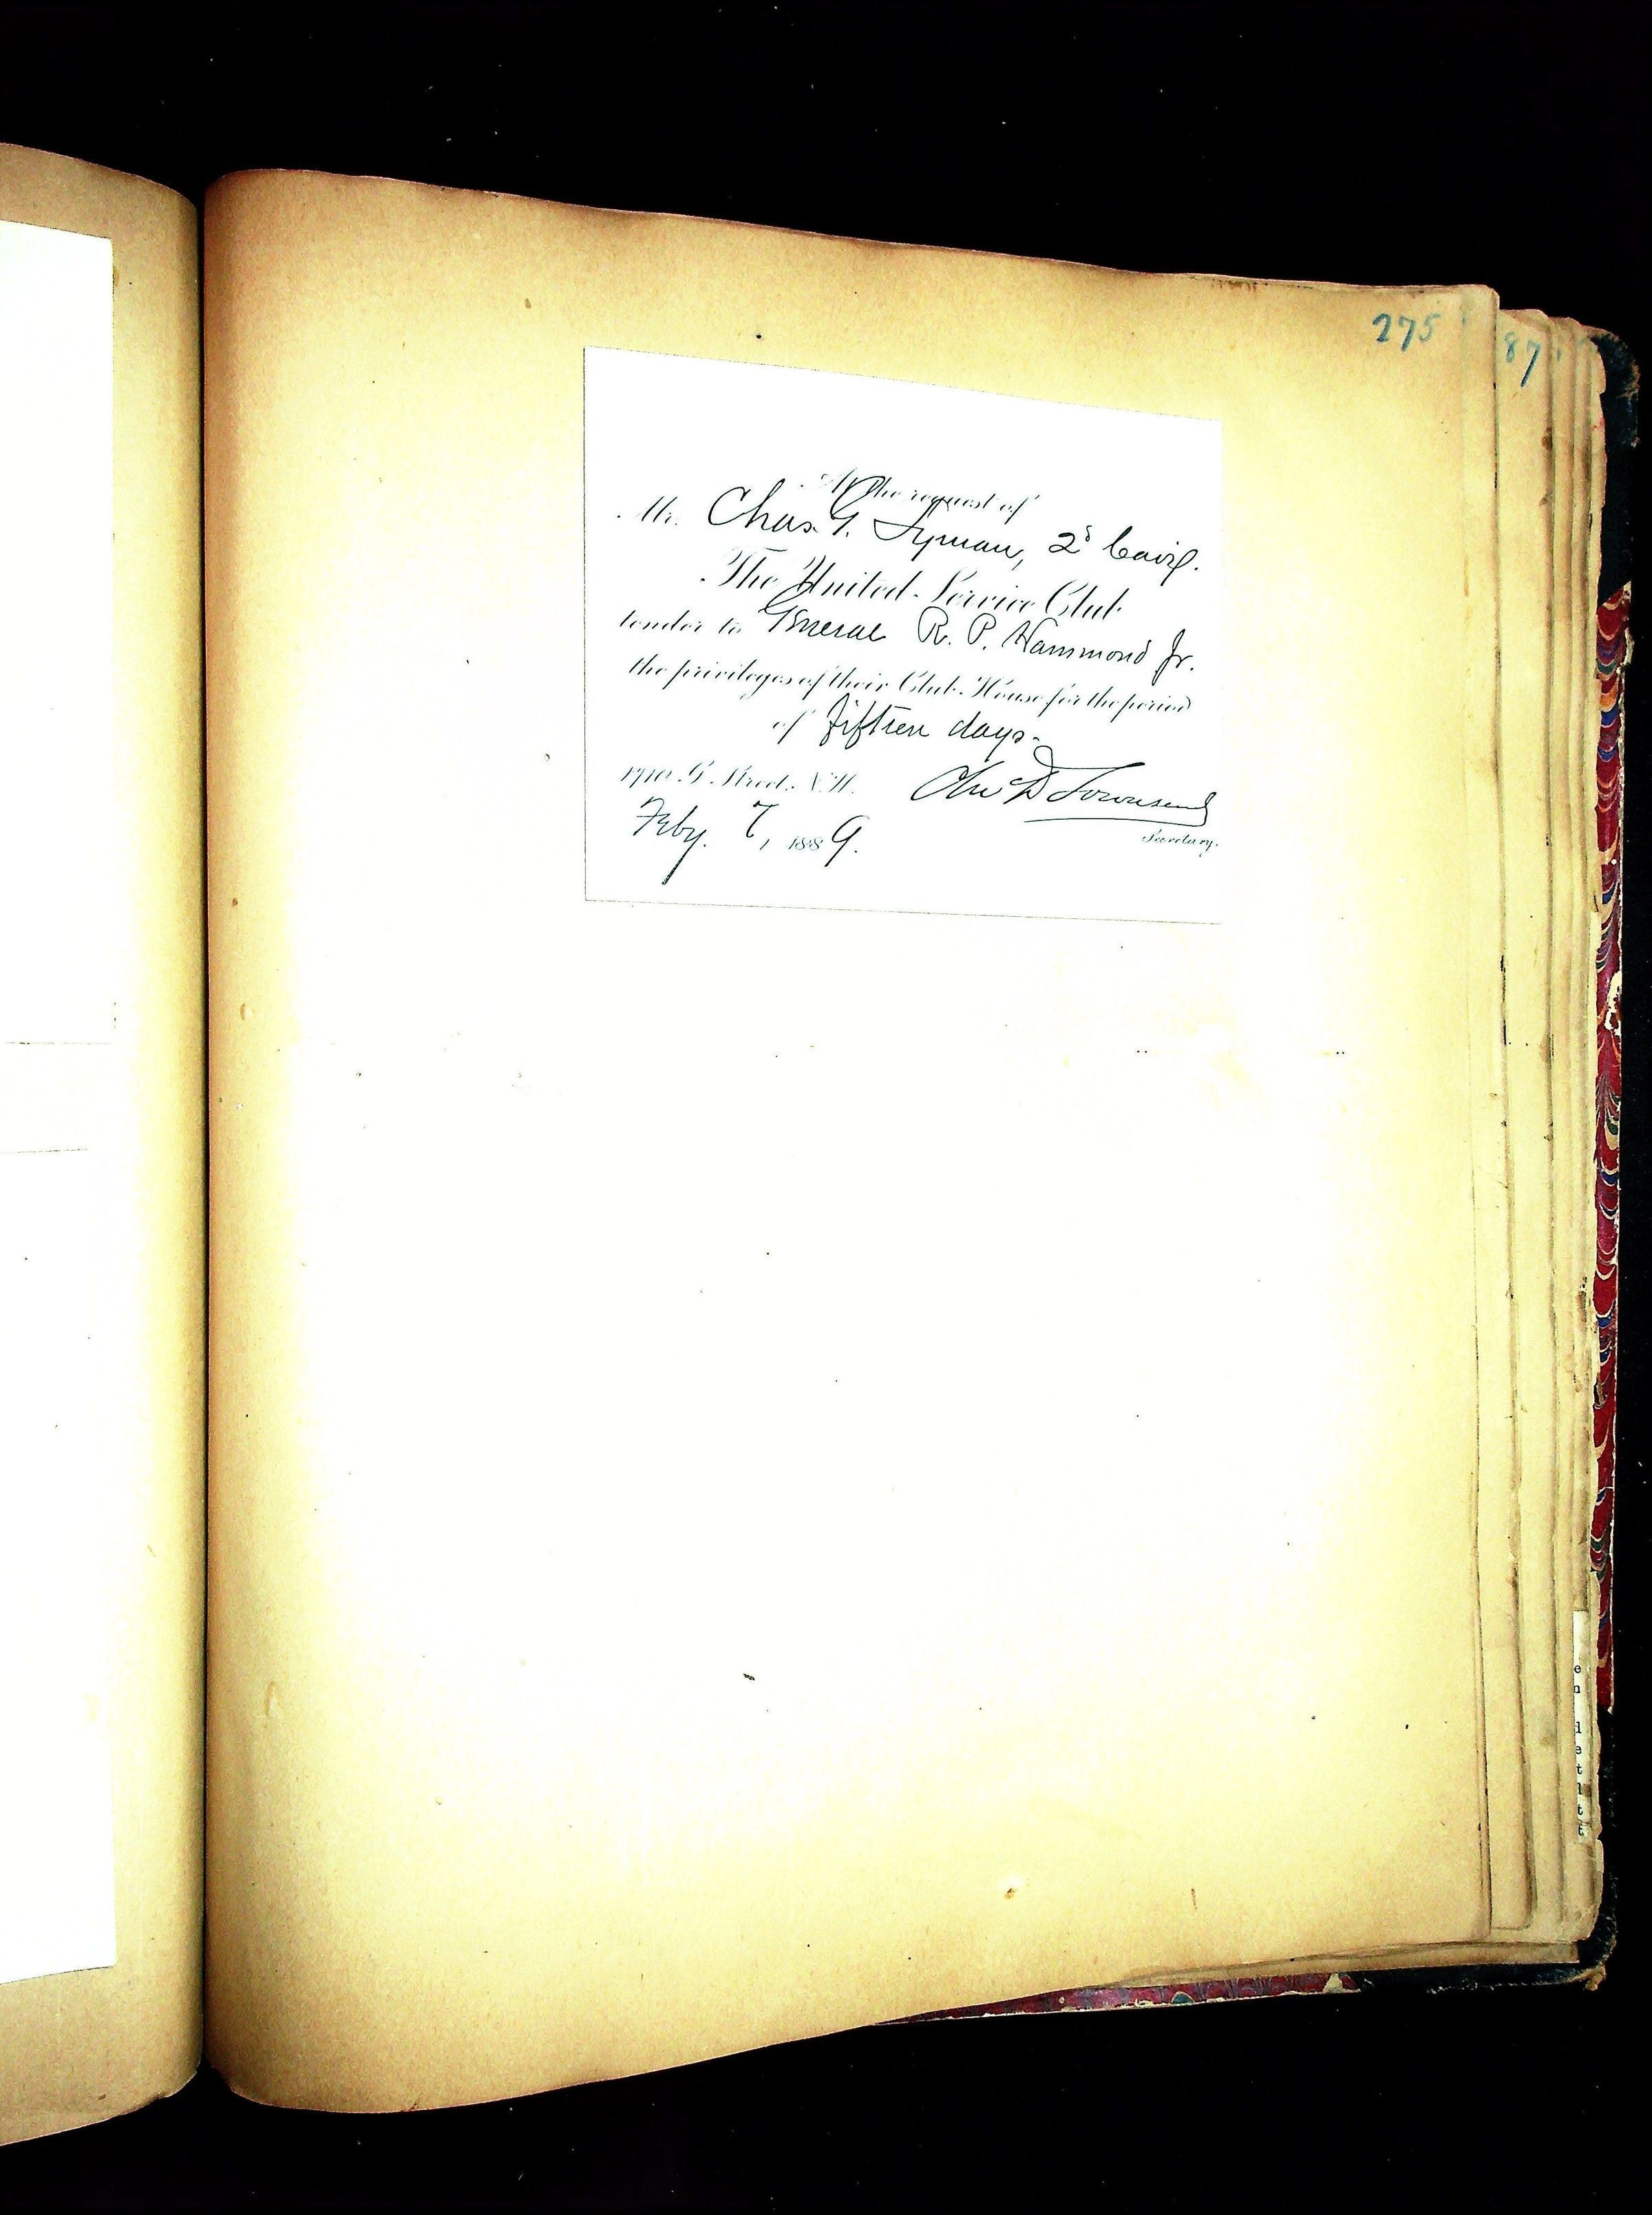 275
87
At the request of
Mr. Chas. G. Lyman, 2d Cavl.
The United Service Club
tender to General R. P. Hammond Jr.
the privileges of their Club-House for the period
of fifteen days.
1710 G. Street. N.W.
Townsend
Feby. 7, 1889.
Secretary.
e
n
d
e
t
l
t